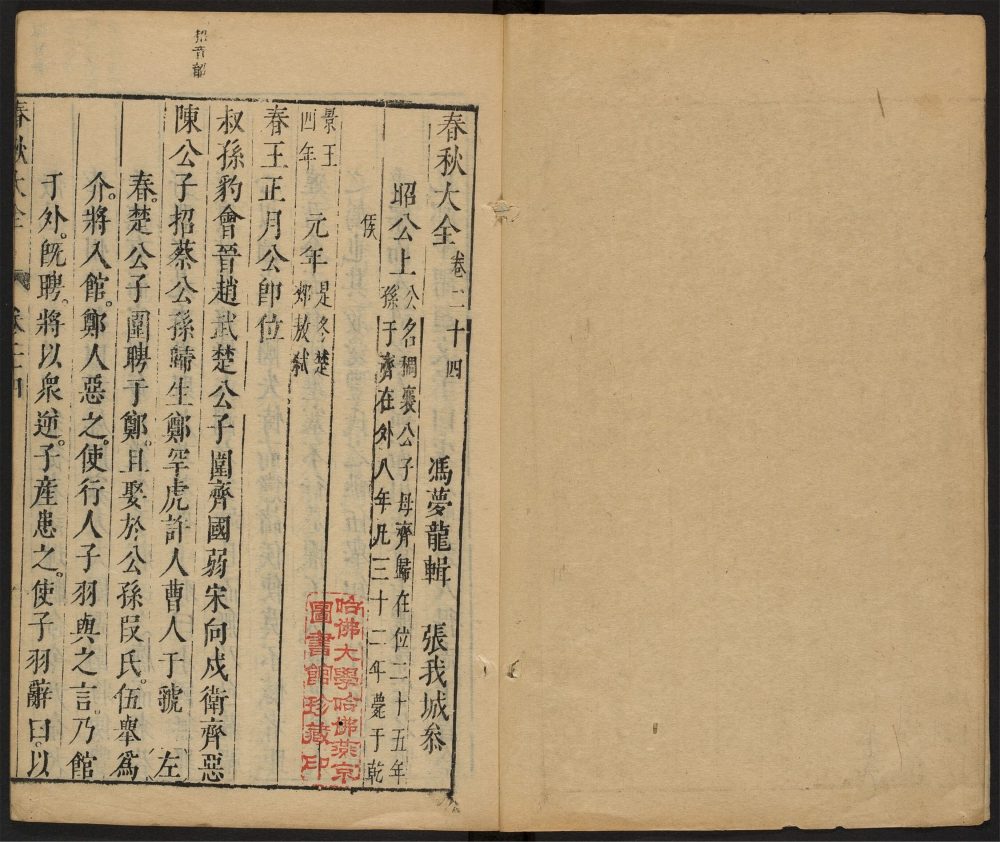 招音韶
春秋大全卷二十四
馮夢龍輯 張我城叅
昭公上公名稠襄公子母齊歸在位二十五年
孫于齊在外八年凡三十二年薨于乾
侯
景王
四年
元年是冬楚
郟敖弑
春王正月公卽位
叔孫豹會晉趙武楚公子圍齊國弱宋向戍衛齊惡
陳公子招蔡公孫歸生鄭罕虎許人曹人于虢 左
春。楚公子圍聘于鄭。且娶於公孫段氏。伍舉爲
介。將入館。鄭人惡之。使行人子羽與之言。乃館
于外。旣聘。將以衆逆。子產患之。使子羽辭曰。以
春秋大全
哈佛大學哈佛燕京
圖書館珍藏印